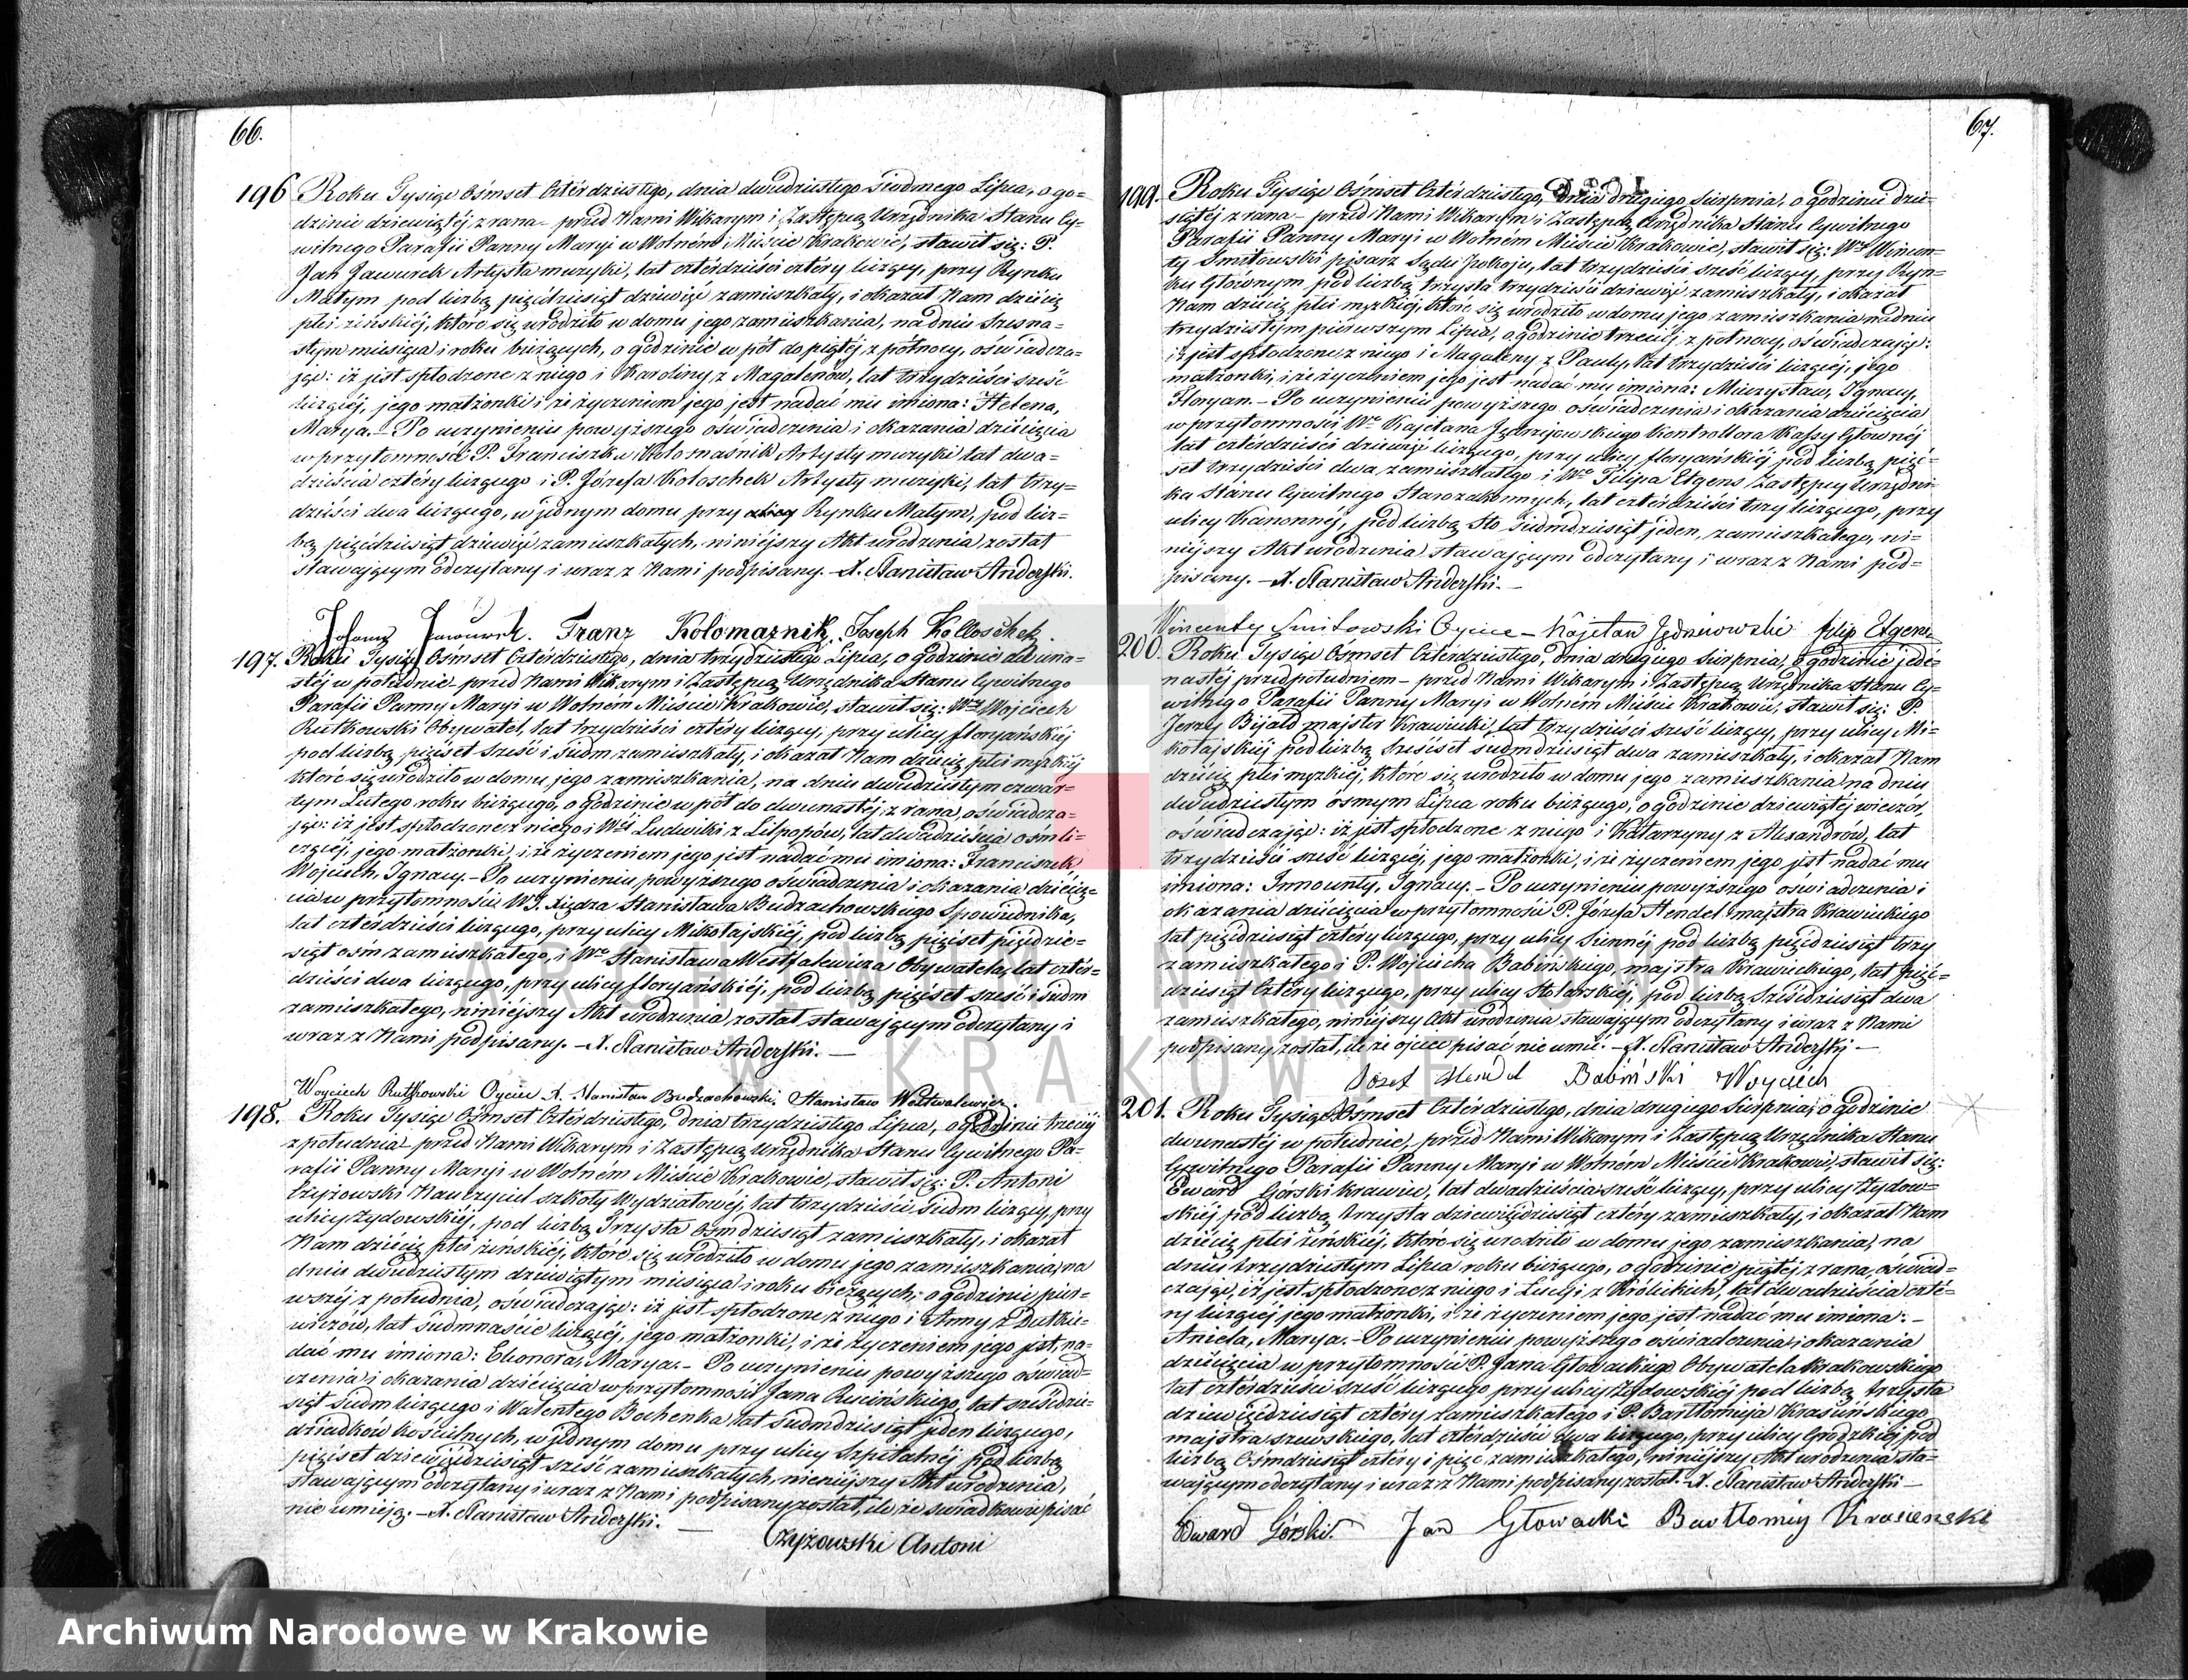 66.
196 Roku Tysiąc Ośmset Czterdziestego, dnia dwudziestego siódmego Lipca, o go-
dzinie dziewiątéj z rana - przed Nami Wikarym i Zastępcą Urzędnika Stanu Cy-
wilnego Parafii Panny Maryi w Wolném Mieście Krakowie, stawił się: P.
Jan Jawurek Artysta muzyki, lat czterdzieści cztéry liczący, przy Rynku
Małym pod liczbą pięćdziesiąt dziewięć zamieszkały, i okazał Nam dziécię
płci żeńskiéj, które się urodziło w domu jego zamieszkania, na dniu szesna-
stym miesiąca i roku bieżących, o godzinie w pół do piątéj z północy, oświadcza-
jąc: iż jest spłodzone z niego i Karoliny z Magalenów, lat trzydzieści sześć
liczącéj, jego małżonki i że życzeniem jego jest nadać mu imiona: Helena,
Marya. - Po uczynieniu powyższego oświadczenia i okazania dziécięcia
w przytomności P. Franciszka Kołomaśnik Artysty muzyki lat dwa-
dzieścia cztéry liczącego i P. Józefa Koloschek Artysty muzyki, lat trzy-
dzieści dwa liczącego, w jednym domu przy Rynku Małym, pod licz-
bą pięćdziesiąt dziewięć zamieszkałych, niniejszy Akt urodzenia został
stawającym odczytany i wraz z Nami podpisany. - X. Stanisław Anderski.
Johann Jawurek. Franz Kolomaznik, Joseph Kolloschek.
197. Roku Tysiąc Ośmset Czterdziestego, dnia trzydziestego Lipca, o godzinie dwuna-
stéj w południe przed Nami Wikarym i Zastępcą Urzędnika Stanu Cywilnego
Parafii Panny Maryi w Wolném Mieście Krakowie, stawił się: Wny Wojciech
Rutkowski Obywatel, lat trzydzieści cztéry liczący, przy ulicy floryańskiéj
pod liczbą pięćset sześć i siedm zamieszkały, i okazał Nam dziécię płci męzkiéj
które się urodziło w domu jego zamieszkania, na dniu dwudziestym czwar-
tym Lutego roku bieżącego, o godzinie w pół do dwunastéj z rana, oświadcza-
jąc: iż jest spłodzone z niego i Wéj Ludwiki z Lilpopów, lat dwadzieścia ośm li-
czącéj, jego małżonki, i że życzeniem jego jest nadać mu imiona: Franciszek
Wojciech, Ignacy. - Po uczynieniu powyższego oświadczenia i okazania dziécię-
cia w przytomności WJ. Xiędza Stanisława Budzachowskiego Spowiednika,
lat czterdzieści liczącego, przy ulicy Mikołajskiéj, pod liczbą pięćset pięćdzie-
siąt ośm zamieszkałego, i Wgo Stanisława Westfalewicza Obywatela, lat czter-
dzieści dwa liczącego, przy ulicy floryańskiéj, pod liczbą pięćset sześć i siedm
zamieszkałego, niniejszy Akt urodzenia, został stawającym odczytany i
wraz z Nami podpisany. - X. Stanisław Anderski. —
Woyciech Rutkowski Oyciec X. Stanisław Budzachowski. Stanisław Westwalewicz.
198. Roku Tysiąc Ośmset Czterdziestego, dnia trzydziestego Lipca, o godzinie trzeciéj
z południa - przed Nami Wikarym i Zastępcą Urzędnika Stanu Cywilnego Pa-
rafii Panny Maryi w Wolném Mieście Krakowie, stawił się: P. Antoni
Czyżowski Nauczyciel szkoły Wydziałowéj, lat trzydzieści siedm liczący, przy
ulicy Żydowskiéj, pod liczbą Trzysta ośmdziesiąt zamieszkały, i okazał
Nam dziécię płci żeńskiéj, które się urodziło w domu jego zamieszkania, na
dniu dwudziestym dziewiątym miesiąca i roku bieżących, o godzinie pier-
wszéj z południa, oświadczając: iż jest spłodzone z niego i Anny z Dutkie-
wiczów, lat siedmnaście liczącéj, jego małżonki, i że życzeniem jego jest, na-
dać mu imiona: Eleonora, Marya. - Po uczynieniu powyższego oświad-
czenia i okazania dziécięcia w przytomności Jana Rusińskiego, lat sześćdzie-
siąt siedm liczącego i Walentego Bochenka, lat siedmdziesiąt jeden liczącego,
dziadków kościelnych, w jednym domu przy ulicy Szpitalnéj pod liczbą
pięćset dziewięćdziesiąt sześć zamieszkałych, niniejszy Akt urodzenia,
stawającym odczytany i wraz z Nami podpisany został, ile że świadkowie pisać
nie umieją. - X. Stanisław Anderski. —
Czyżowski Antoni
67.
199. Roku Tysiąc Ośmset Czterdziestego, dnia drugiego Sierpnia, o godzinie dzie-
siątéj z rana - przed Nami Wikarym i Zastępcą Urzędnika Stanu Cywilnego
Parafii Panny Maryi w Wolném Mieście Krakowie, stawił się: Wny Wincen-
ty Smitowski pisarz Sądu Pokoju, lat trzydzieści sześć liczący, przy Ryn-
ku Głównym pod liczbą trzysta trzydzieści dziewięć zamieszkały, i okazał
Nam dziécię płci męzkiéj, które się urodziło w domu jego zamieszkania na dniu
trzydziestym pierwszym Lipca, o godzinie trzeciéj z północy, oświadczając:
iż jest spłodzone z niego i Magaleny z Pauly, lat trzydzieści liczącéj, jego
małżonki, i że życzeniem jego jest nadać mu imiona: Mieczysław, Ignacy,
Floryan. - Po uczynieniu powyższego oświadczenia i okazania dziécięcia
w przytomności Wgo Kajetana Jędrzejowskiego Kontrollora Kassy Głownéj
lat czterdzieści dziewięć liczącego, przy ulicy floryańskiéj pod liczbą pięć-
set trzydzieści dwa, zamieszkałego i Wgo Filipa Etgens Zastępcy Urzędni-
ka Stanu Cywilnego Starozakonnych, lat czterdzieści trzy liczącego, przy
ulicy Kanonnéj, pod liczbą sto siedmdziesiąt jeden, zamieszkałego, ni-
niejszy Akt urodzenia stawającym odczytany i wraz z Nami pod-
pisany. - X. Stanisław Anderski. -
Wincenty Smitowski Oyciec - Kajetan Jędrzeiowski filip Etgens
200. Roku Tysiąc Ośmset Czterdziestego, dnia drugiego Sierpnia, o godzinie jede-
nastéj przed południem - przed Nami Wikarym i Zastępcą Urzędnika Stanu Cy-
wilnego Parafii Panny Maryi w Wolném Mieście Krakowie, stawił się: P.
Jerzy Bijałd majster Krawiecki, lat trzydzieści sześć liczący, przy ulicy Mi-
kołajskiéj pod liczbą sześćset siedmdziesiąt dwa zamieszkały, i okazał Nam
dziécię płci męzkiéj, które się urodziło w domu jego zamieszkania na dniu
dwudziestym ósmym Lipca roku bieżącego, o godzinie dziewiątéj wieczór,
oświadczając: iż jest spłodzone z niego i Katarzyny z Alexandrów, lat
trzydzieści sześć liczącéj, jego małżonki, i że życzeniem jego jest nadać mu
imiona: Innocenty, Ignacy. - Po uczynieniu powyższego oświadczenia i
okazania dziécięcia w przytomności P. Józefa Hendel majstra Krawieckiego
lat pięćdziesiąt cztéry liczącego, przy ulicy Siennéj pod liczbą pięćdziesiąt trzy
zamieszkałego i P. Wojciecha Babińskiego, majstra Krawieckiego, lat pięć-
dziesiąt Cztéry liczącego, przy ulicy Stolarskiéj, pod liczbą Sześćdziesiąt dwa
zamieszkałego, niniejszy Akt urodzenia stawającym odczytany i wraz z Nami
podpisany został, ile że ojciec pisać nie umié. - X. Stanisław Anderski -
Józef Hendel Babiński Woyciech
201. Roku Tysiąc Ośmset Czterdziestego, dnia drugiego Sierpnia, o godzinie
dwunastéj w południe, przed Nami Wikarym i Zastępcą Urzędnika Stanu
Cywilnego Parafii Panny Maryi w Wolném Mieście Krakowie, stawił się:
Edward Górski krawiec, lat dwadzieścia sześć liczący, przy ulicy Żydow-
skiéj pod liczbą trzysta dziewięćdziesiąt cztéry zamieszkały, i okazał Nam
dziécię płci żeńskiéj, które się urodziło w domu jego zamieszkania, na
dniu trzydziestym Lipca roku bieżącego, o godzinie piątéj z rana, oświad-
czając, iż jest spłodzone z niego i Łucyi z Królickich, lat dwadzieścia czté-
ry liczącéj jego małżonki, i że życzeniem jego jest nadać mu imiona: -
Aniela, Marya. - Po uczynieniu powyższego oświadczenia i okazania
dziécięcia w przytomności P. Jana Głowackiego Obywatela Krakowskiego
lat czterdzieści sześć liczącego przy ulicy Żydowskiéj pod liczbą trzysta
dziewięćdziesiąt cztéry zamieszkałego i P. Bartłomieja Krasińskiego
majstra szewskiego, lat czterdzieści dwa liczącego, przy ulicy Grodzkiéj pod
liczbą Ośmdziesiąt cztéry i pięć zamieszkałego, niniejszy Akt urodzenia sta-
wającym odczytany i wraz z Nami podpisany został. - X. Stanisław Anderski -
Edward Górski. Jan Głowacki Bartłomiy Krasienski
ARCHIWUM NARODOWE
W KRAKOWIE
Archiwum Narodowe w Krakowie